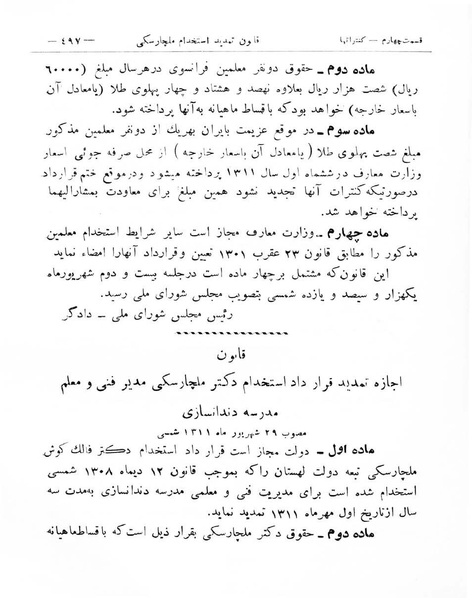 قسمت چهارم — کنتراتها
قانون تمدید استخدام ملچارسکی
— ٤٩٧ —
ماده دوم ـ حقوق دونفر معلمین فرانسوی درهرسال مبلغ (٦٠٠٠٠
ریال) شصت هزار ریال بعلاوه نهصد و هشتاد و چهار پهلوی طلا (یامعادل آن
باسعار خارجه) خواهد بود که باقساط ماهیانه به‌آنها پرداخته شود.
ماده سوم ـ در موقع عزیمت بایران بهریك از دونفر معلمین مذکور
مبلغ شصت پهلوی طلا (یامعادل آن باسعار خارجه) از محل صرفه جوئی اسعار
وزارت معارف درششماه اول سال ١٣١١ پرداخته میشود ودرموقع ختم قرارداد
درصورتیکه کنترات آنها تجدید نشود همین مبلغ برای معاودت بمشارالیهما
پرداخته خواهد شد.
ماده چهارم ـ وزارت معارف مجاز است سایر شرایط استخدام معلمین
مذکور را مطابق قانون ٢٣ عقرب ١٣٠١ تعیین وقرارداد آنهارا امضاء نماید
این قانون که مشتمل برچهار ماده است درجلسه بیست و دوم شهریورماه
یکهزار و سیصد و یازده شمسی بتصویب مجلس شورای ملی رسید.
رئیس مجلس شورای ملی ـ دادگر
قانون
اجازه تمدید قرار داد استخدام دکتر ملچارسکی مدیر فنی و معلم
مدرسه دندانسازی
مصوب ٢٩ شهریور ماه ١٣١١ شمسی
ماده اول ـ دولت مجاز است قرار داد استخدام دکتر فالك کوش
ملچارسکی تبعه دولت لهستان راکه بموجب قانون ١٢ دیماه ١٣٠٨ شمسی
استخدام شده است برای مدیریت فنی و معلمی مدرسه دندانسازی به‌مدت سه
سال ازتاریخ اول مهرماه ١٣١١ تمدید نماید.
ماده دوم ـ حقوق دکتر ملچارسکی بقرار ذیل است که باقساط‌ماهیانه